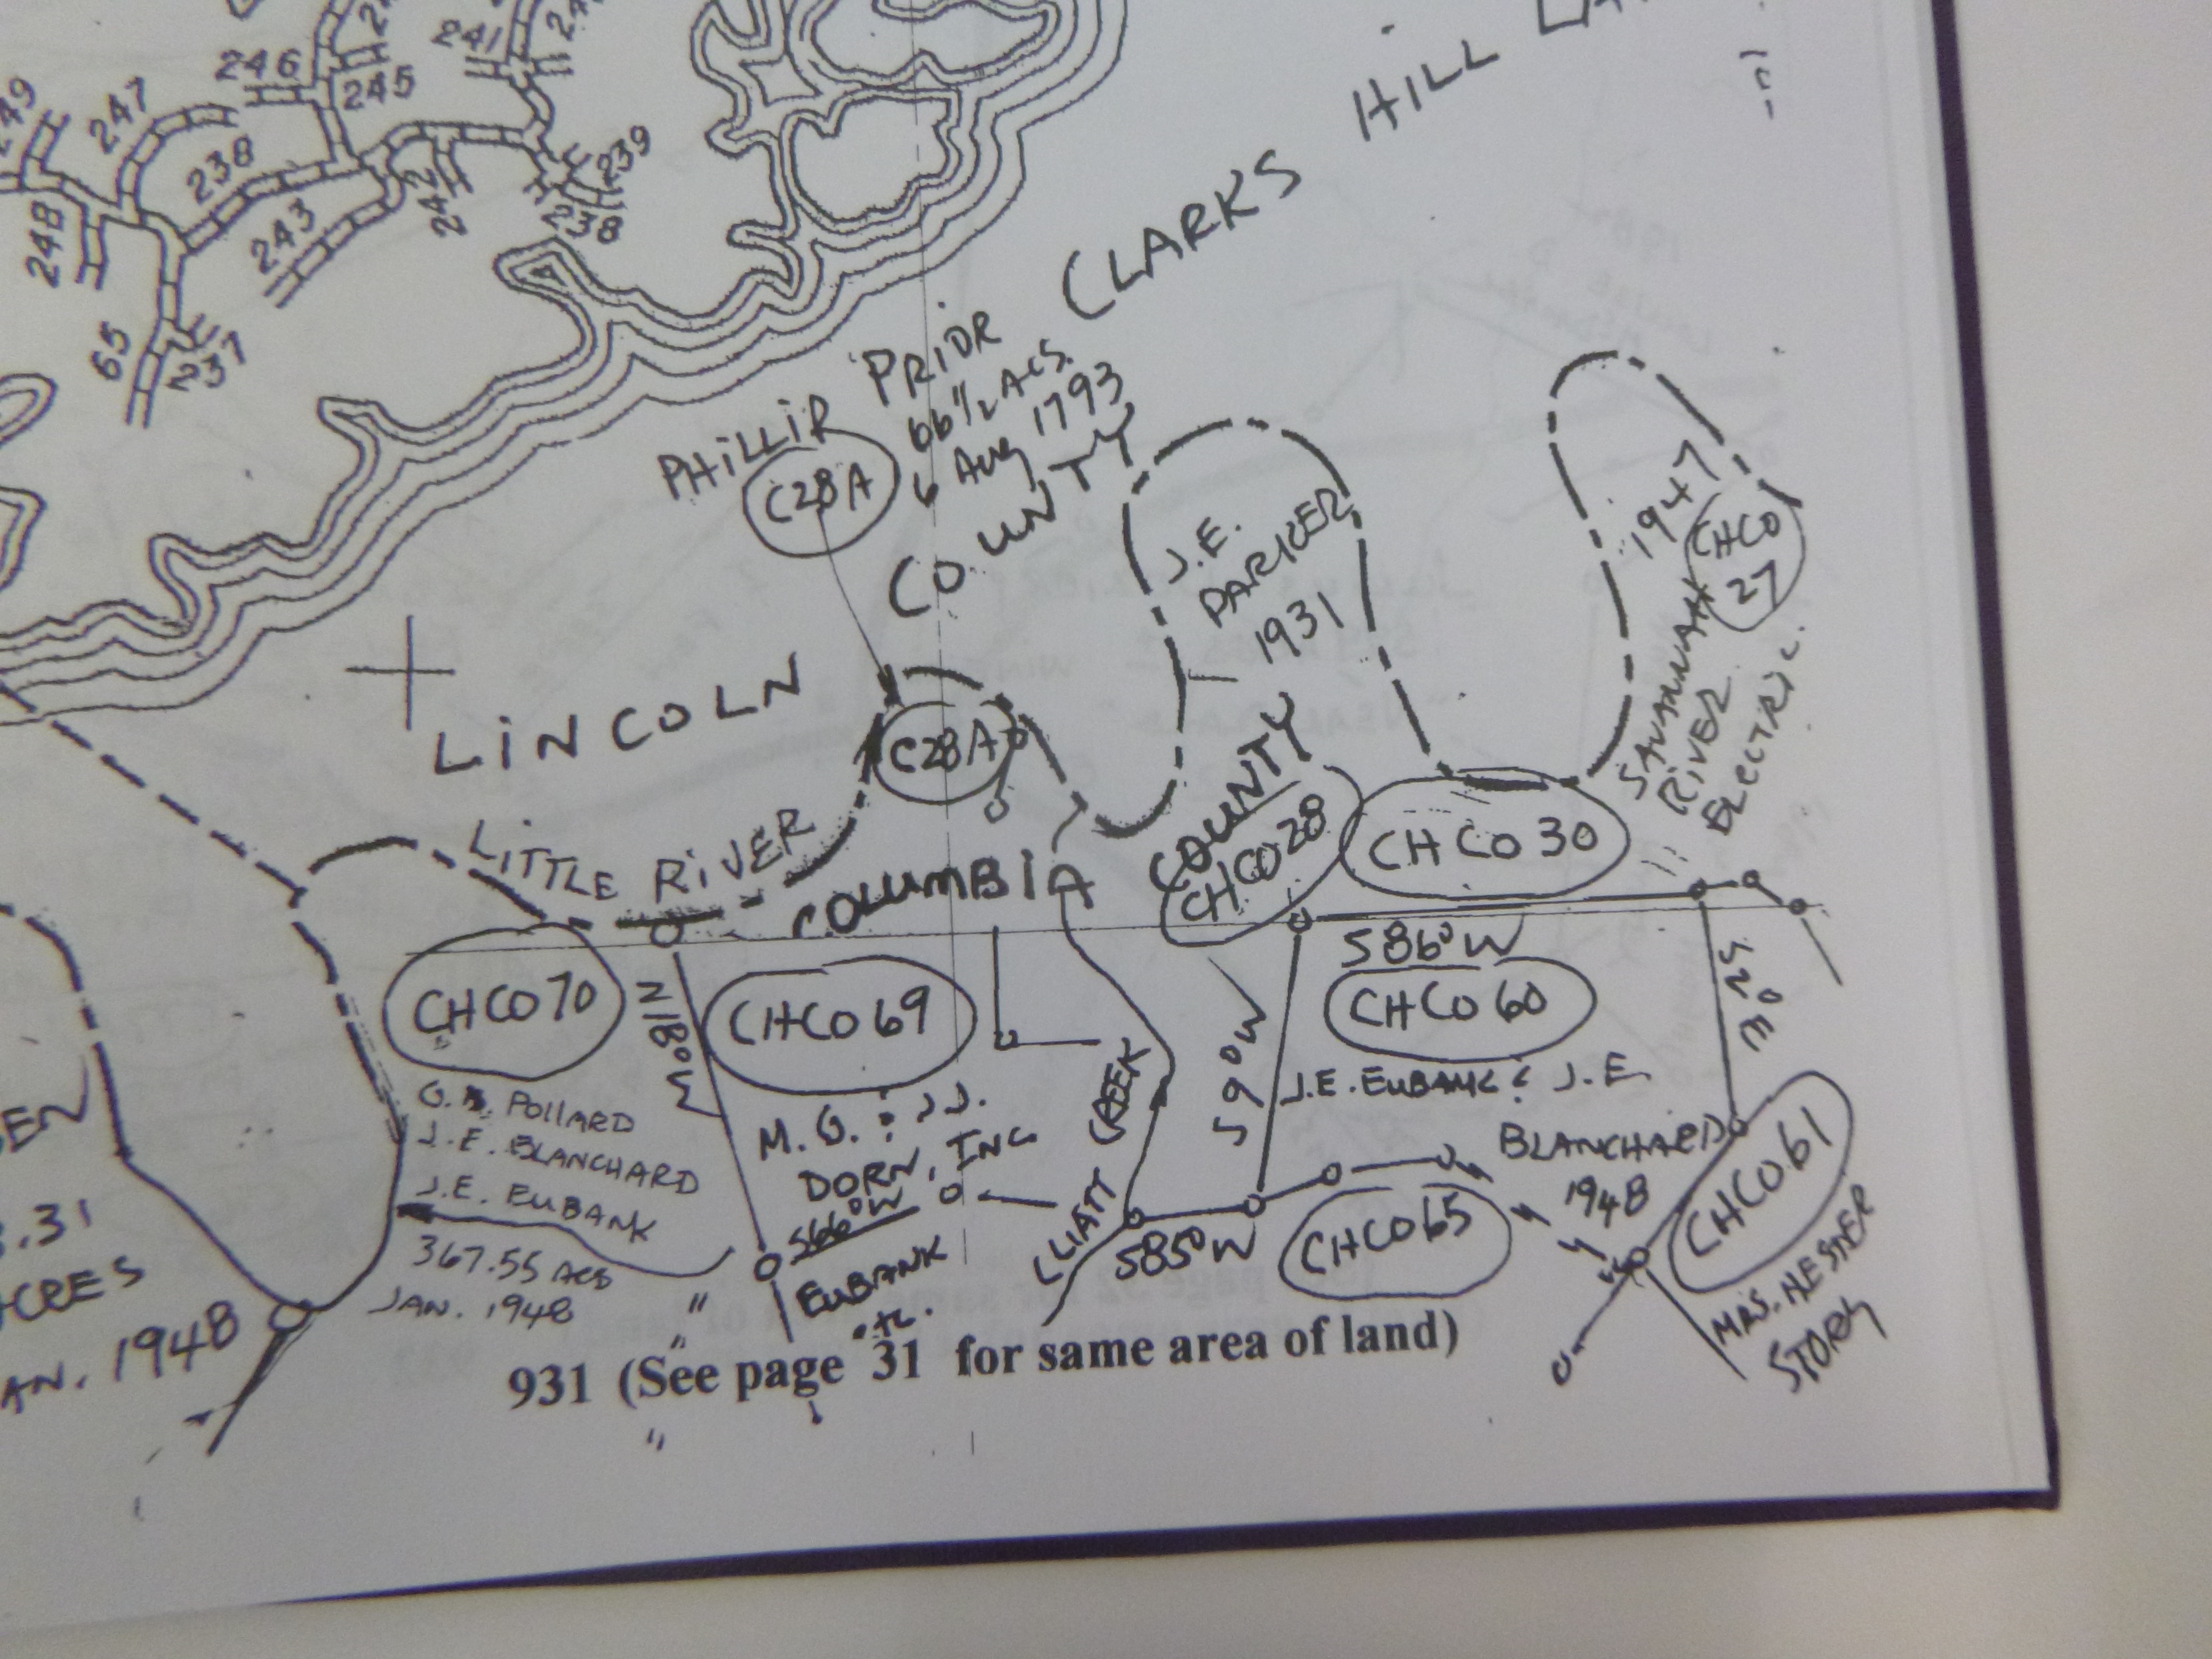 246
245
241
247
238
239
238
242
248
243
65
237
CLARKS HILL
PHILLIP PRIOR
66 1/2 ACS.
6 Aug 1793
C28A
LINCOLN COUNTY
J.E.
PARKER
1931
1947
CHCO
27
SAVANNAH
RIVER
ELECTRIC.
C28A
LITTLE RIVER
COLUMBIA COUNTY
CHCO 28
CHCO 30
S86°W
CHCO 70
N18°W
CHCO 69
CHCO 60
S2°E
S9°W
J.E. EUBANK & J.E.
BLANCHARD
1948
POLLARD
J.E. BLANCHARD
J.E. EUBANK
367.55 ACS
JAN. 1948
M.G. & J.J.
DORN, INC
S66°W
EUBANK
etc.
CLIATT CREEK
S85°W
CHCO 65
CHCO 61
MRS. HESTER
STORY
.31
ACRES
AN. 1948
931 (See page 31 for same area of land)